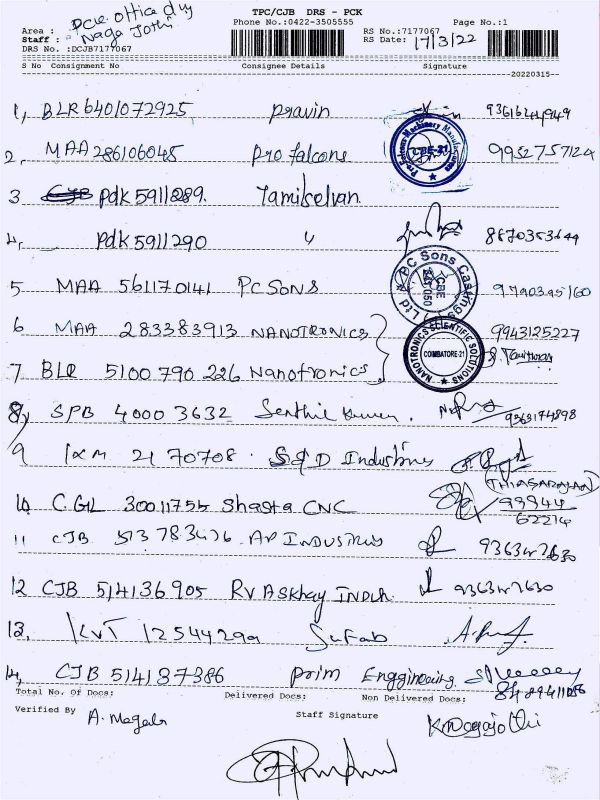 TPC/CJB DRS - PCK
Pcll office dly
Area :
Naga Jothi
Phone No.:0422-3505555
Page No.:1
Staff :
RS No.:7177067
DRS No. :DCJB7177067
RS Date: 17/3/22
S No Consignment No Consignee Details Signature
20220315
1, BLR6401072925 pravin
2. MAA 286106045 pro falcons 9952757124
3 Pdk 5911289. Tamilselvan
4. Pdk 5911290 " 8870353644
5 MAA 561170141 PC SONS
PC Sons Casting
Ltd
6 MAA 283383913 NANOTRONICS 9943125227
NANOTRONICS SCIENTIFIC SOLUTIONS
COIMBATORE-21
7 BLR 5100790226 Nanotronics
8, SPB 4000 3632 Senthil kumar. 9363174898
9 IXM 21 70708 S&D Industries
10 C.GL 30011755 Shasta CNC 99944
62214
11 CJB 513783426 AP INDUSTRIES 9363427630
12 CJB 514136905 RV Askhay India 9363427630
13. KVT 12544299 Sufab
14, CJB 514137386 prim Enggineering
Total No. Of Docs: Delivered Docs: Non Delivered Docs: 8489411056
Verified By A. Megala Staff Signature K. Nagajothi